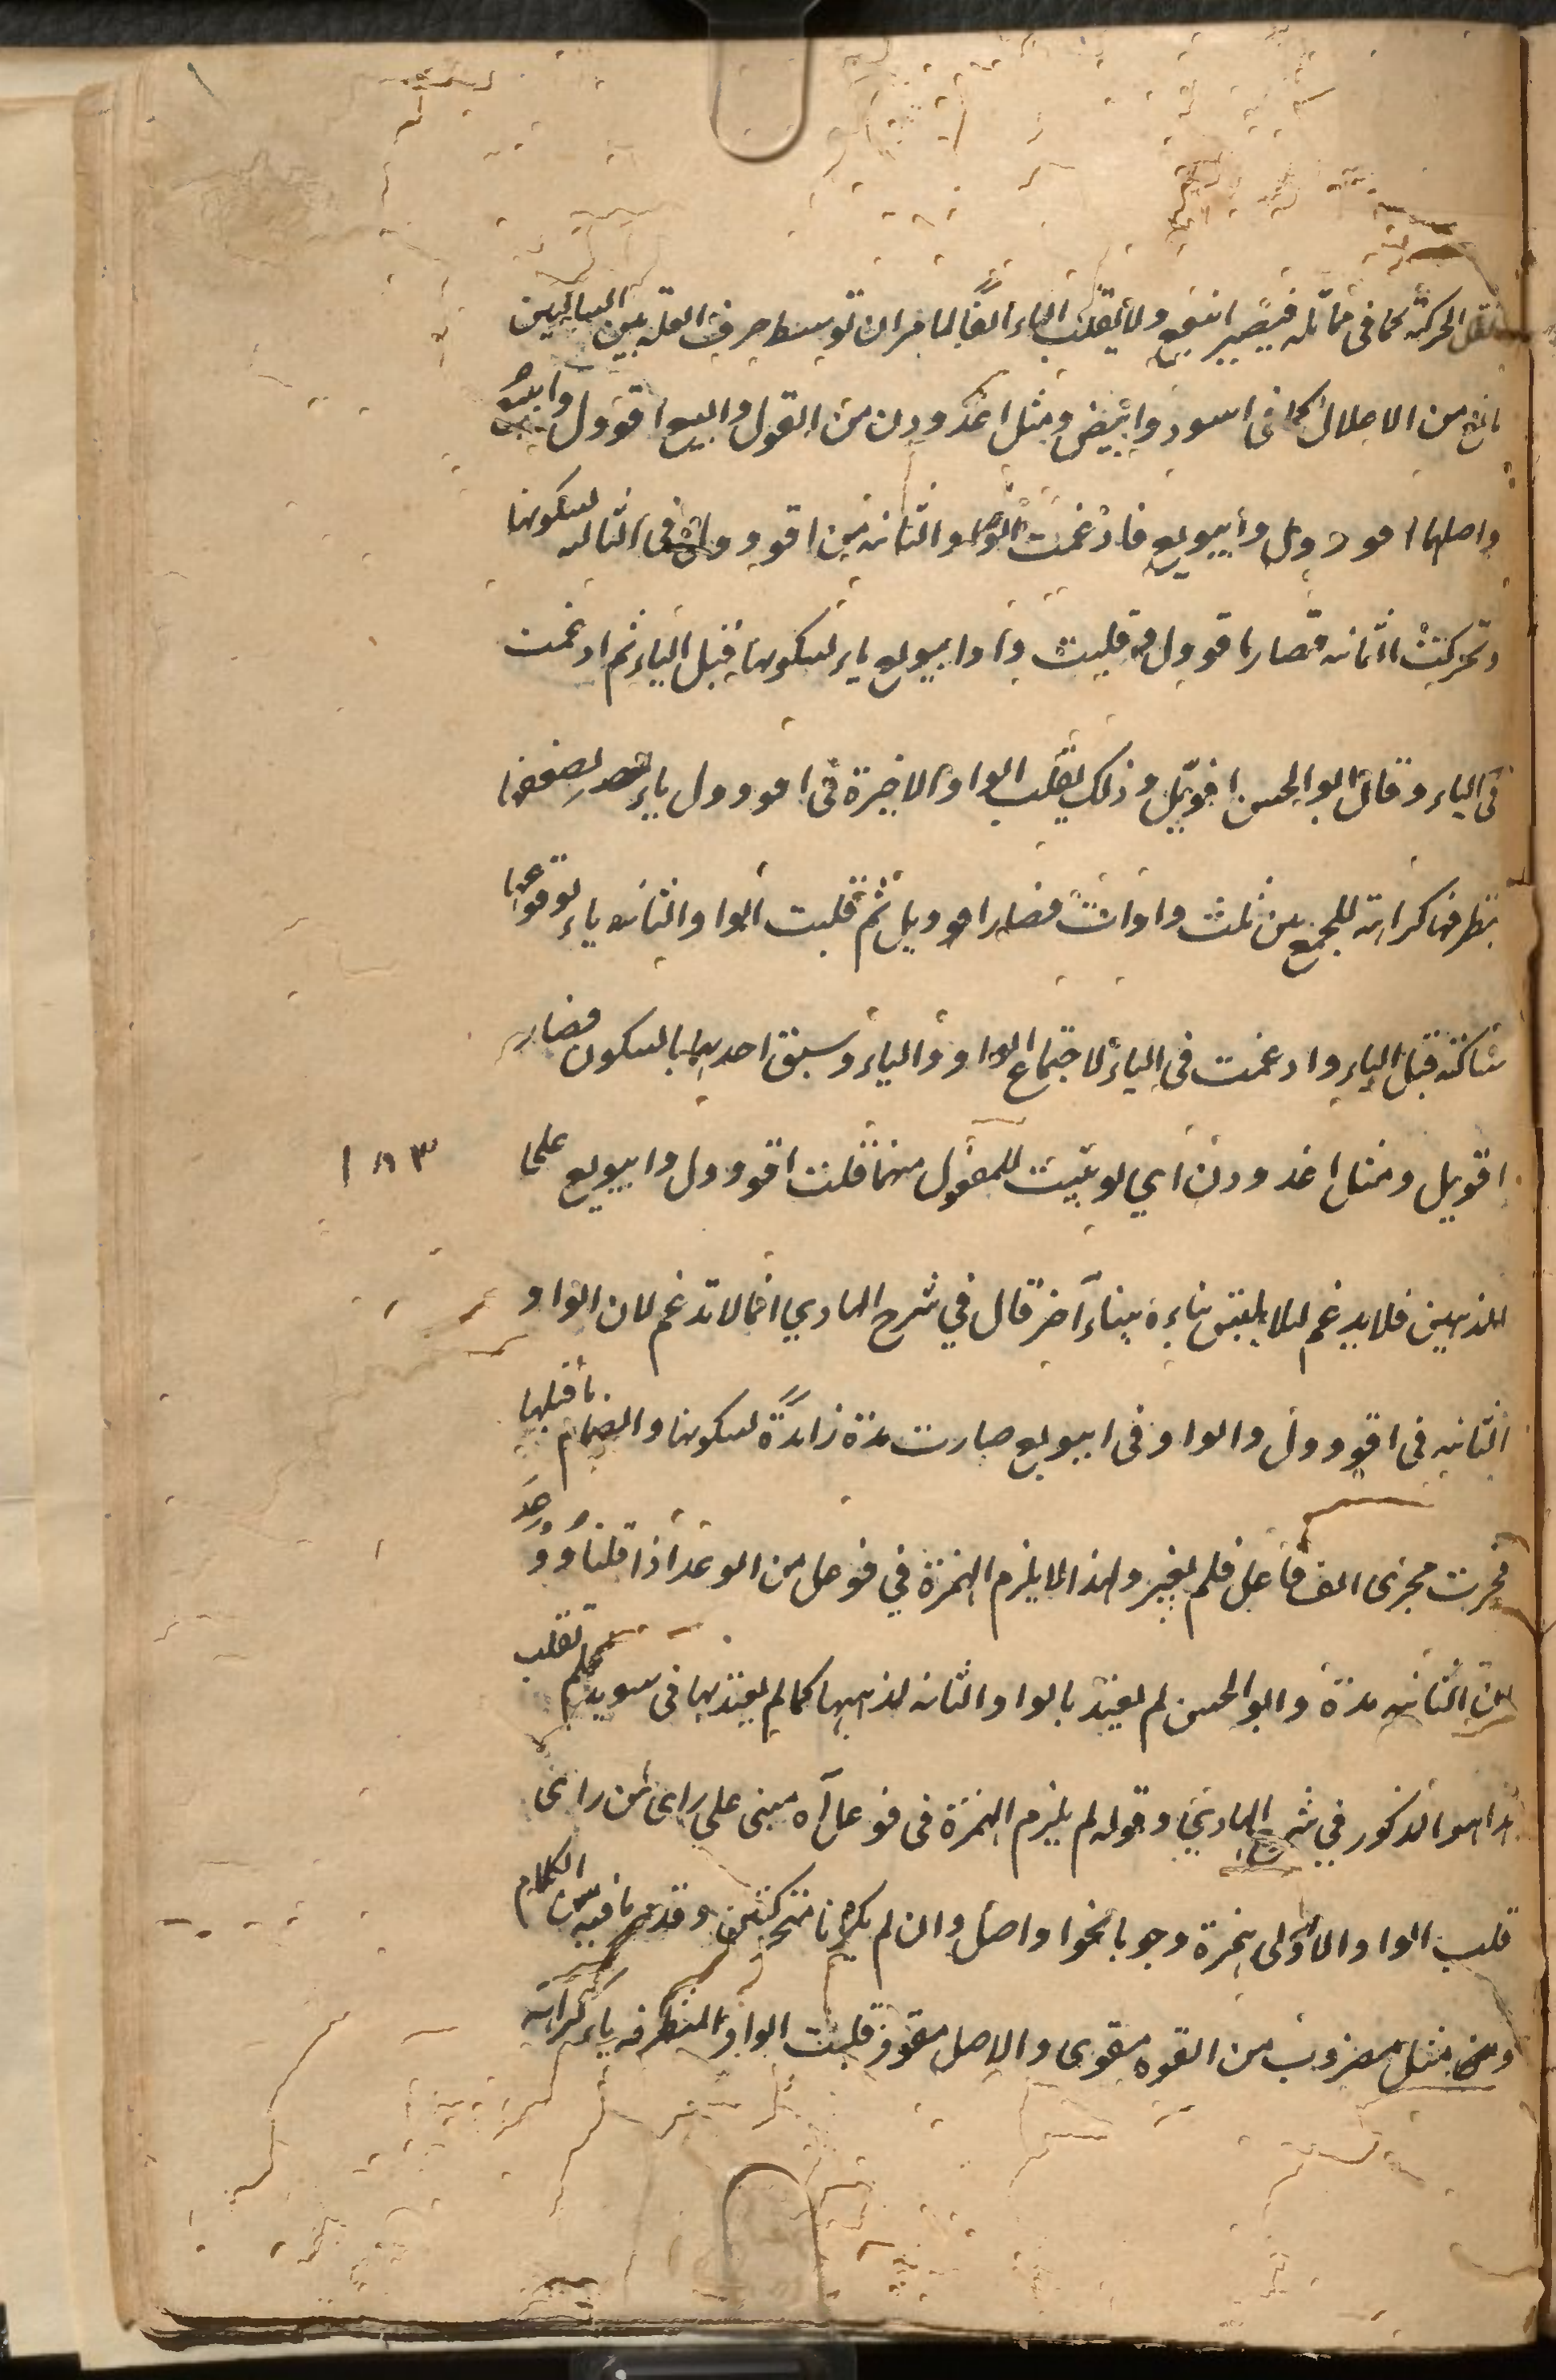 تنقل الحركة كما في مماثله فيصير ابيع ولا يقلب الياء الفا لما مر ان توسط حرف العلة بين الساكنين
مانع من الاعلال كما في اسود وابيض ومثل اغدودن من القول والبيع اقوول وابيع
واصلهما اقوول وابيويع فادغمت الواو الثانية من اقوول في الثالثة لسكونها
وتحركت الثالثة فصار اقوول وقلبت واو ابيويع ياء لسكونها قبل الياء ثم ادغمت
في الياء وقال ابو الحسن اقويل وذلك بقلب الواو الاخيرة في اقوول ياء لضعفها
بتطرفها كراهة للجمع بين ثلث واوات فصار اقوويل ثم قلبت الواو الثانية ياء لوقوعها
ساكنة قبل الياء وادغمت في الياء لاجتماع الواو والياء وسبق احديهما بالسكون فصار
اقويل ومثل اغدودن اي لو بنيت للمفعول منهما قلت اقوول وابيويع على ١٨٣
المذهبين فلا يدغم لئلا يلتبس بناءه ببناء آخر قال في شرح الهادي انما لا تدغم لان الواو
الثانية في اقوول والواو في ابيويع صارت مدة زائدة لسكونها وانضمام ما قبلها
فجرت مجرى الف فاعل فلم يغير ولهذا لم يلزم الهمزة في فوعل من الوعد اذا قلنا ووعد
لان الثانية مدة وابو الحسن لم يعتد بالواو الثانية لذهابها كما لم يعتد بها في سوير فلم تقلب
هذا هو المذكور في شرح الهادي وقوله لم يلزم الهمزة في فوعل آه مبني على رأى من رأى
قلب الواو الاولى همزة وجوبا نحو اواصل وان لم يكونا متحركتين وقد مر ما فيه من الكلام
ومن مثل مضروب من القوة مقوى والاصل مقووو قلبت الواو المتطرفة ياء كراهة